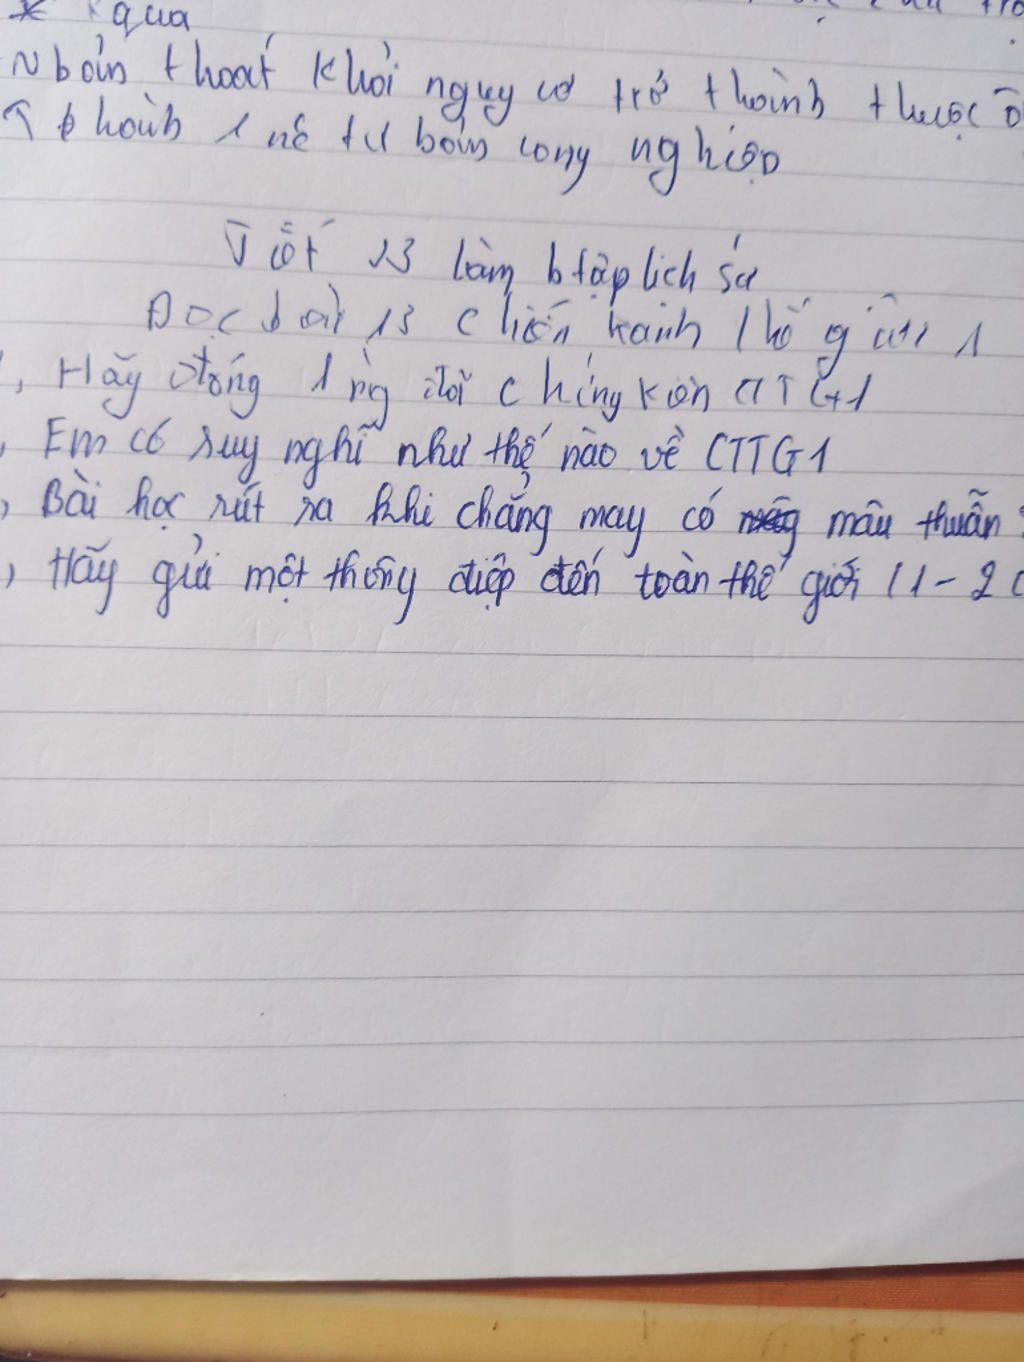 * qua
Nbản thoát khỏi nguy cơ trở thành thuộc
thành 1 nc tư bản công nghiệp
Tiết 13 làm btập lịch sử
Đọc bài 13 chiến tranh thế giới 1
, Hãy đóng 1 ng đã chứng kiến CTTG1
, Em có suy nghĩ như thế nào về CTTG1
, Bài học rút ra khi chẳng may có mâu thuẫn
, Hãy gửi một thông điệp đến toàn thế giới (1-2